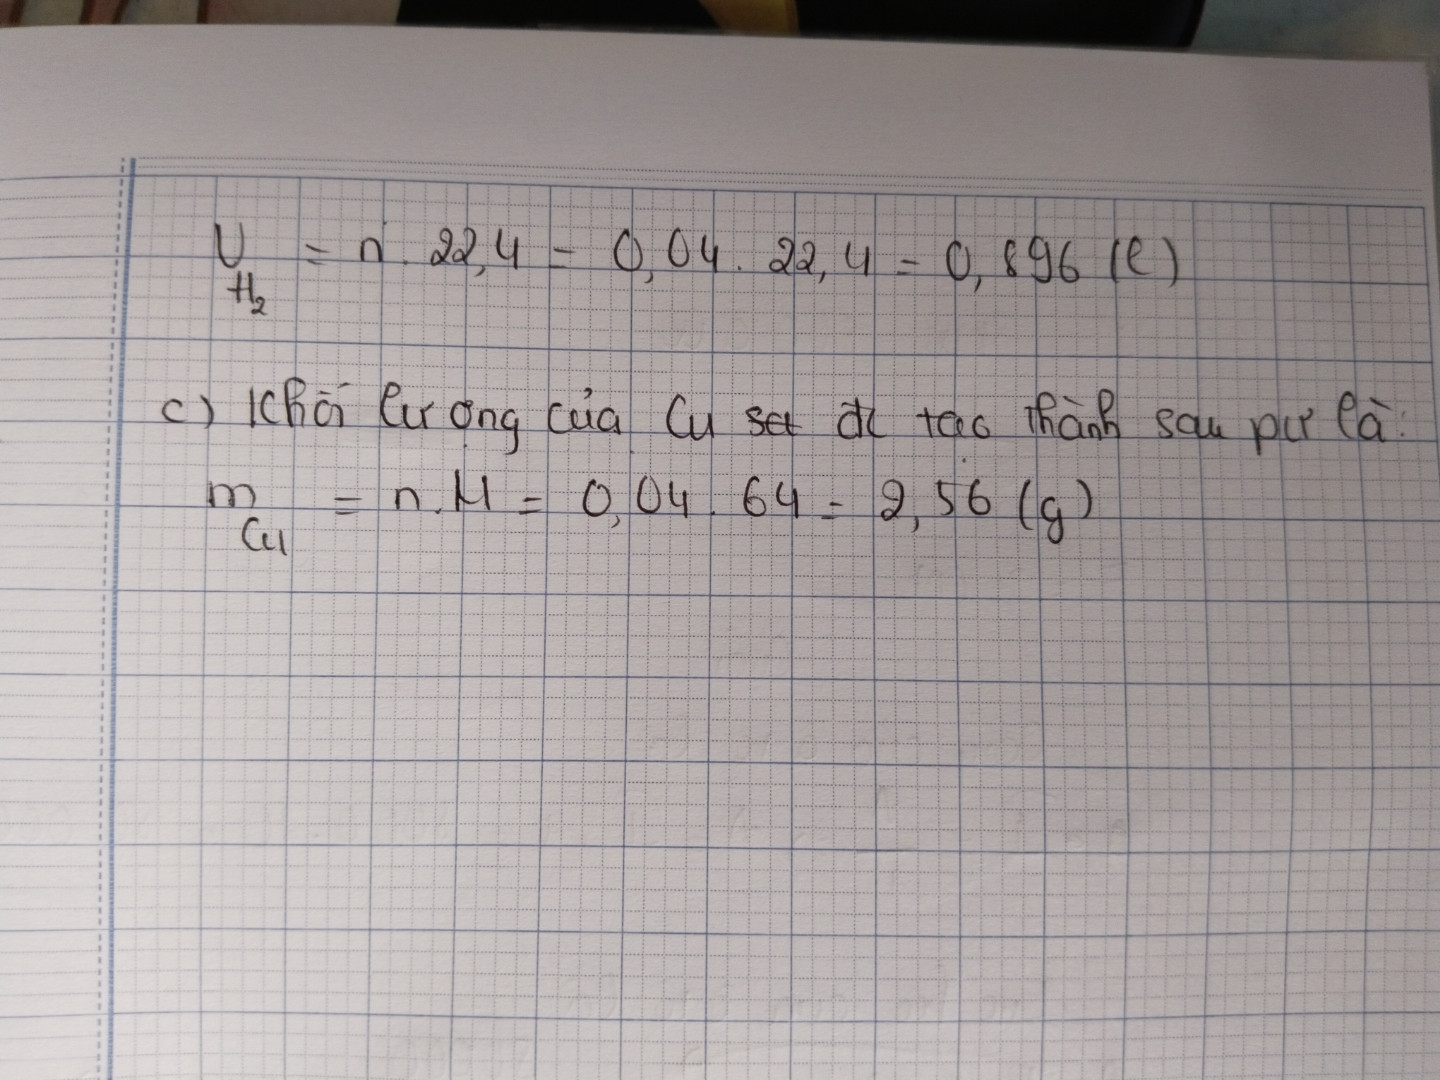 V = n. 22,4 = 0,04. 22,4 = 0,896 (l)
H2
c) Khối lượng của Cu đc tạo thành sau pư là:
m = n.M = 0,04. 64 = 2,56 (g)
Cu